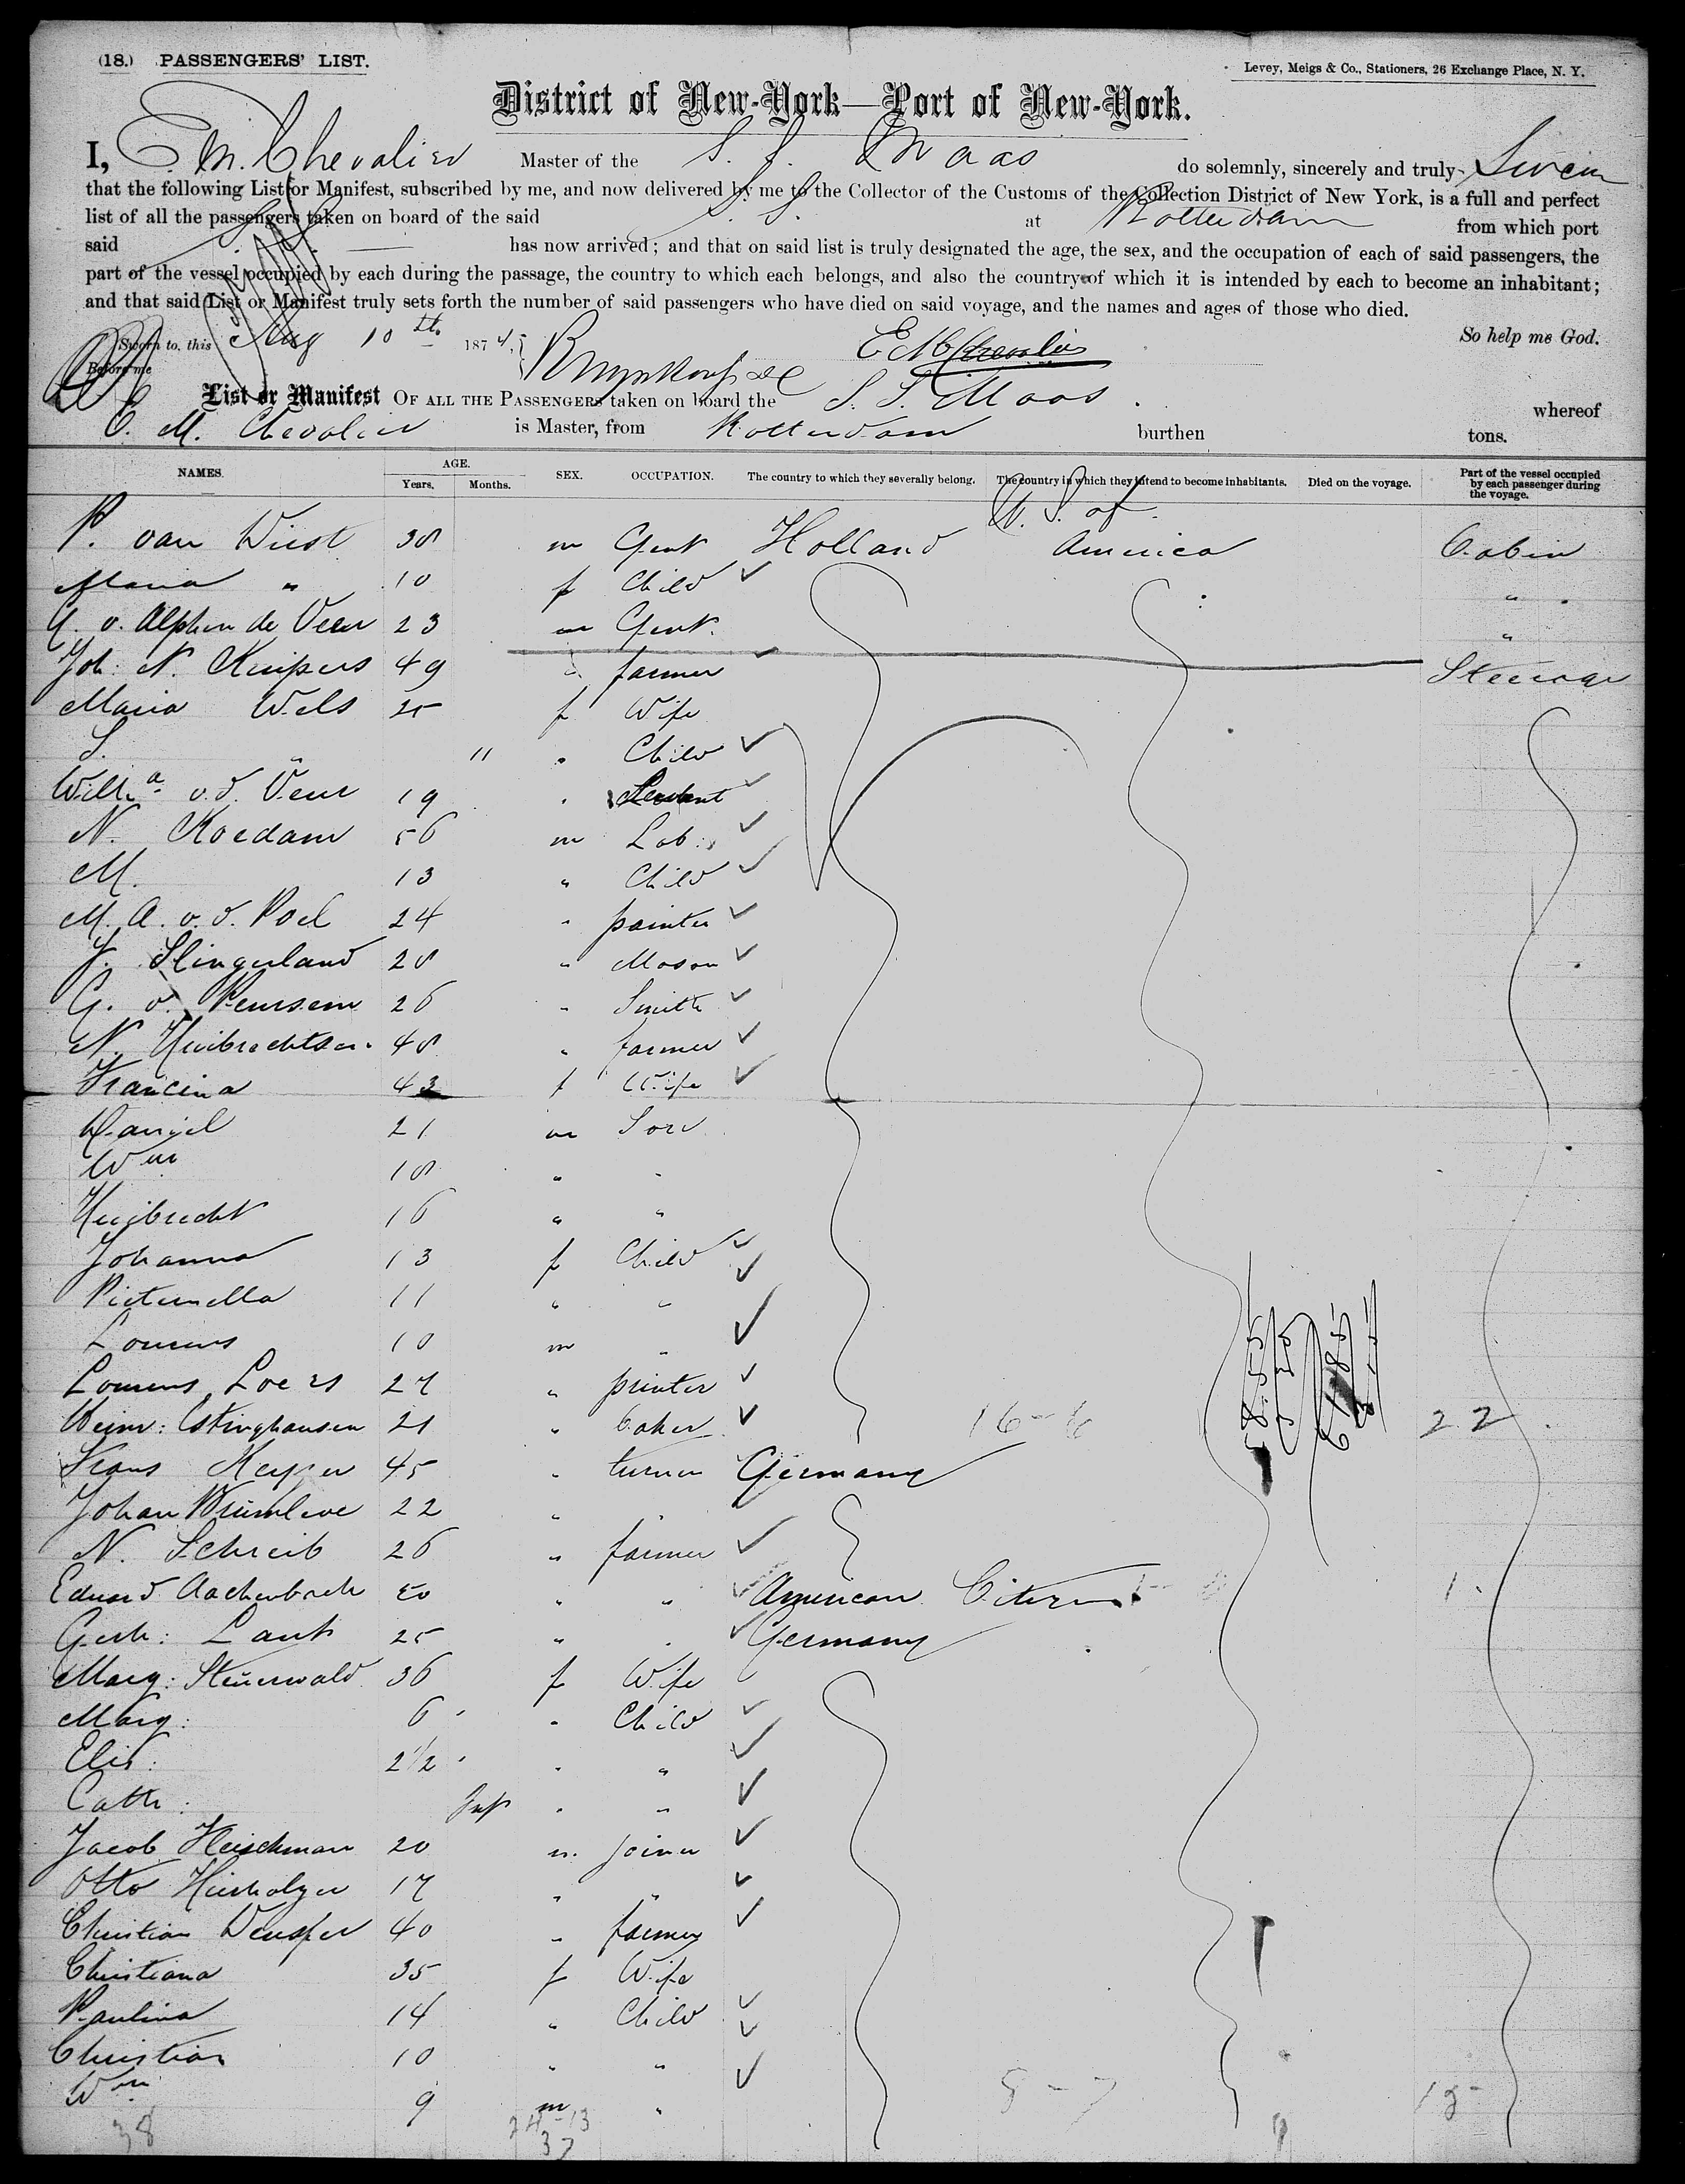 (18.) PASSENGERS' LIST.
Levey, Meigs & Co., Stationers, 26 Exchange Place, N. Y.
District of New-York—Port of New-York.
I, E. M. Chevalier Master of the S. S. Maas do solemnly, sincerely and truly Swear
that the following List or Manifest, subscribed by me, and now delivered by me to the Collector of the Customs of the Collection District of New York, is a full and perfect
list of all the passengers taken on board of the said S. S. at Rotterdam from which port
said S. S. has now arrived; and that on said list is truly designated the age, the sex, and the occupation of each of said passengers, the
part of the vessel occupied by each during the passage, the country to which each belongs, and also the country of which it is intended by each to become an inhabitant;
and that said List or Manifest truly sets forth the number of said passengers who have died on said voyage, and the names and ages of those who died.
So help me God.
Sworn to, this Aug 10th 187
E M Chevalier
Before me
List or Manifest OF ALL THE PASSENGERS taken on board the S. S. Maas whereof
E. M. Chevalier is Master, from Rotterdam burthen tons.
NAMES. AGE. Years. Months. SEX. OCCUPATION. The country to which they severally belong. The country in which they intend to become inhabitants. Died on the voyage. Part of the vessel occupied by each passenger during the voyage.
P. van Wiest 38 m Gent Holland U. S. of America Cabin
Maria " 10 f Child "
G. v. Alphen de Veer 23 m Gent. "
Joh: N. Kuipers 49 farmer Steerage
Maria Wels 25 f Wife
S. " 11 " Child
Wilha v. d. Veur 19 " Servant
N. Koedam 56 m Lab:
M. 13 " Child
M. A. v. d. Poel 24 " painter
J. Slingerland 28 " Mason
G. v. Peursem 26 " Smith
N. Huibrechtse 48 " farmer
Francina 43 f Wife
Daniel 21 m Son
Wm 18 " "
Huibrecht 16 " "
Johanna 13 f Child
Pieternella 11 " "
Lourens 10 m "
Lourens Loers 27 " printer
Heinr: Estinghausen 21 " baker 16-6 22
Frans Keyser 45 " turner Germany
Johan Brümleve 22 " "
N. Schreib 26 " farmer
Eduard Aachenbach 50 " " American Citizen 1
Gerh: Lank 25 " " Germany
Marg: Steuerwald 36 f Wife
Marg: 6 " Child
Elis: 2 1/2 " "
Cath: Inf " "
Jacob Fleischman 20 m joiner
Otto Hierholzer 17 " "
Christian Wenzler 40 " farmer
Christiana 35 f Wife
Paulina 14 " Child
Christian 10 " "
Wm 9 m " 8-7 15
38 24-13
37